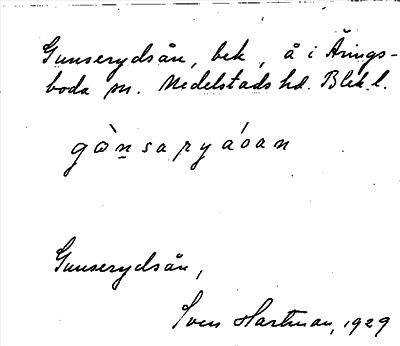 Gunserydsån, bek, å i Årings-
boda sn. Medelstads hd. Blek. l.
Gunserydsån,
Sven Hartman, 1929